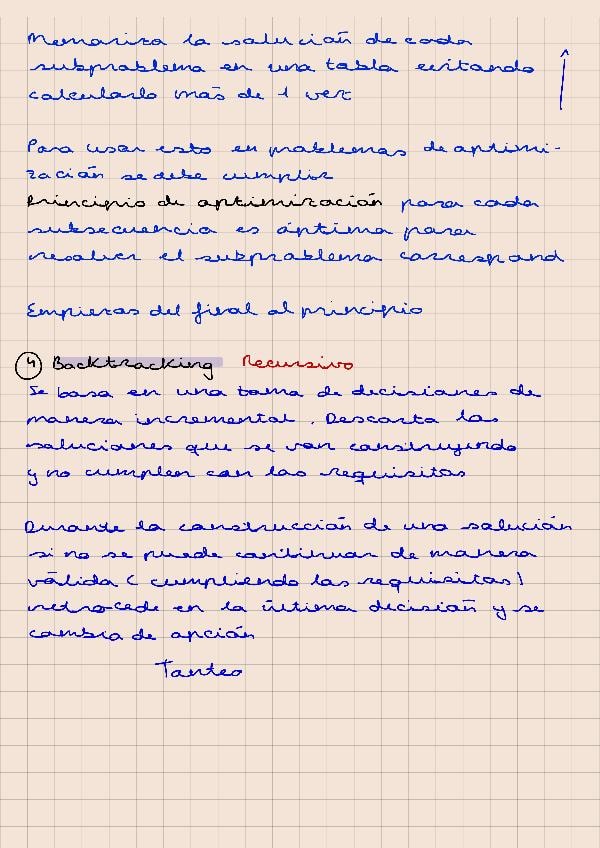 Memoriza la solución de cada
subproblema en una tabla evitando
calcularlo más de 1 vez
Para usar esto en problemas de optimi-
zación se debe cumplir
Principio de optimización para cada
subsecuencia es óptima para
resolver el subproblema correspond
Empiezas del final al principio
4 Backtracking Recursivo
Se basa en una toma de decisiones de
manera incremental. Descarta las
soluciones que se van construyendo
y no cumplen con los requisitos
Durante la construcción de una solución
si no se puede continuar de manera
válida (cumpliendo los requisitos)
retrocede en la última decisión y se
cambia de opción
Tanteo